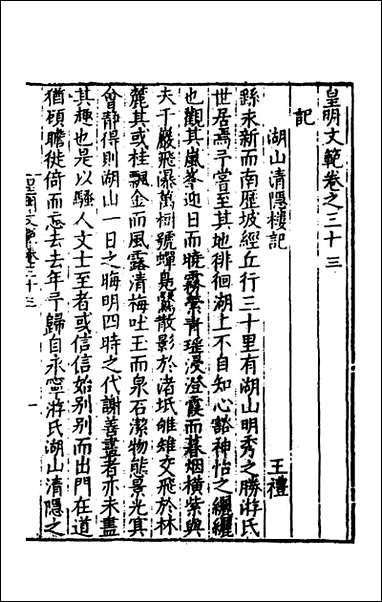 皇明文範卷之三十三
記
湖山清隱樓記
王禮
繇永新而南歷坡經丘行三十里有湖山明秀之勝游氏
世居焉予嘗至其地徘徊湖上不自知心豁神怡之纚纚
也觀其嵐峯迎日而曉霧縈青瑶浸澄霞而暮烟橫紫與
夫千巖飛瀑萬樹號蟬鳧鷖散影於渚坻雊雉交飛於林
麓其或桂飄金而風露清梅吐玉而泉石潔物態景光真
會靜得則湖山一日之晦明四時之代謝善畫者亦未盡
其趣也是以騷人文士至者或信信始別別而出門在道
猶頋瞻徙倚而忘去去年予歸自永寧游氏湖山清隱之
皇明文範卷三十三
一